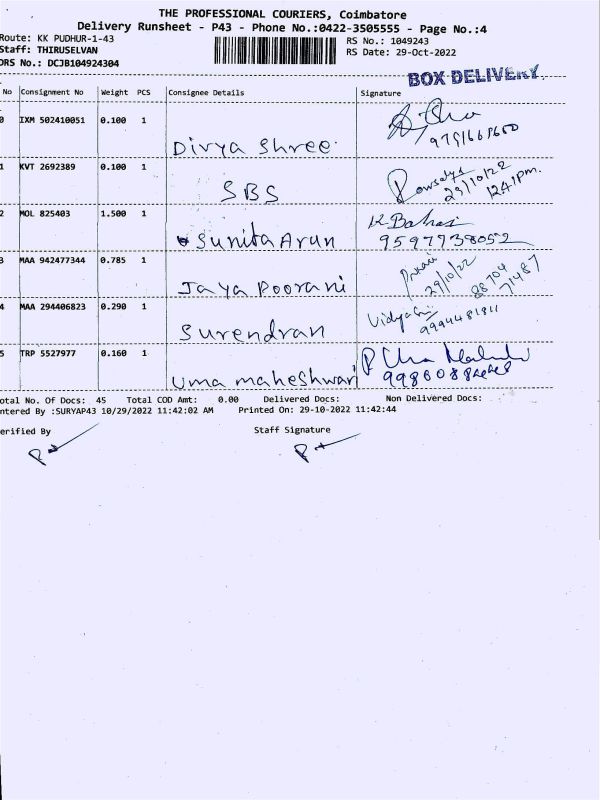 THE PROFESSIONAL COURIERS, Coimbatore
Delivery Runsheet - P43 - Phone No.:0422-3505555 - Page No.:4
Route: KK PUDHUR-1-43
RS No.: 1049243
Staff: THIRUSELVAN
RS Date: 29-Oct-2022
DRS No.: DCJB104924304
BOX DELIVERY.
No Consignment No Weight PCS Consignee Details Signature
0 IXM 502410051 0.100 1
Divya Shree.
1 KVT 2692389 0.100 1
29/10/22
12.41pm.
SBS
2 MOL 825403 1.500 1
Sunita Arun
9597738052
3 MAA 942477344 0.785 1
29/10/22
88704
71487
Jaya Poorani
4 MAA 294406823 0.290 1
Surendran
5 TRP 5527977 0.160 1
Uma maheshwari
otal No. Of Docs: 45 Total COD Amt: 0.00 Delivered Docs: Non Delivered Docs:
ntered By :SURYAP43 10/29/2022 11:42:02 AM Printed On: 29-10-2022 11:42:44
erified By Staff Signature